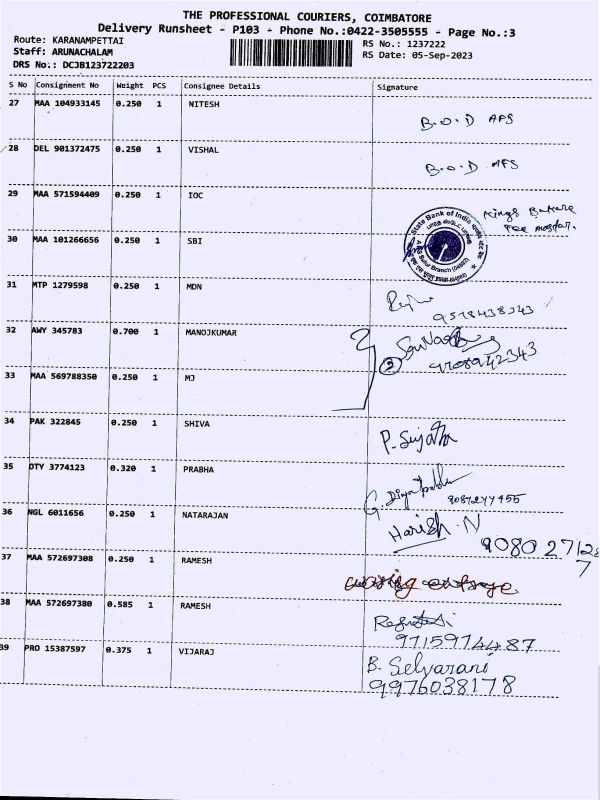 THE PROFESSIONAL COURIERS, COIMBATORE
Delivery Runsheet - P103 - Phone No.:0422-3505555 - Page No.:3
Route: KARANAMPETTAI
Staff: ARUNACHALAM
DRS No.: DCJB123722203
RS No.: 1237222
RS Date: 05-Sep-2023
S No Consignment No Weight PCS Consignee Details Signature
27 MAA 104933145 0.250 1 NITESH B.O.D AFS
28 DEL 901372475 0.250 1 VISHAL B.O.D AFS
29 MAA 571594409 0.250 1 IOC
State Bank of India
30 MAA 101266656 0.250 1 SBI
31 MTP 1279598 0.250 1 MDN
32 AWY 345783 0.700 1 MANOJKUMAR
2
33 MAA 569788350 0.250 1 MJ
34 PAK 322845 0.250 1 SHIVA P. Sujatha
35 DTY 3774123 0.320 1 PRABHA
36 NGL 6011656 0.250 1 NATARAJAN Harish.N
9080 27128
7
37 MAA 572697308 0.250 1 RAMESH
38 MAA 572697380 0.585 1 RAMESH
9715974487
39 PRO 15387597 0.375 1 VIJARAJ B. Selvarani
9976038178